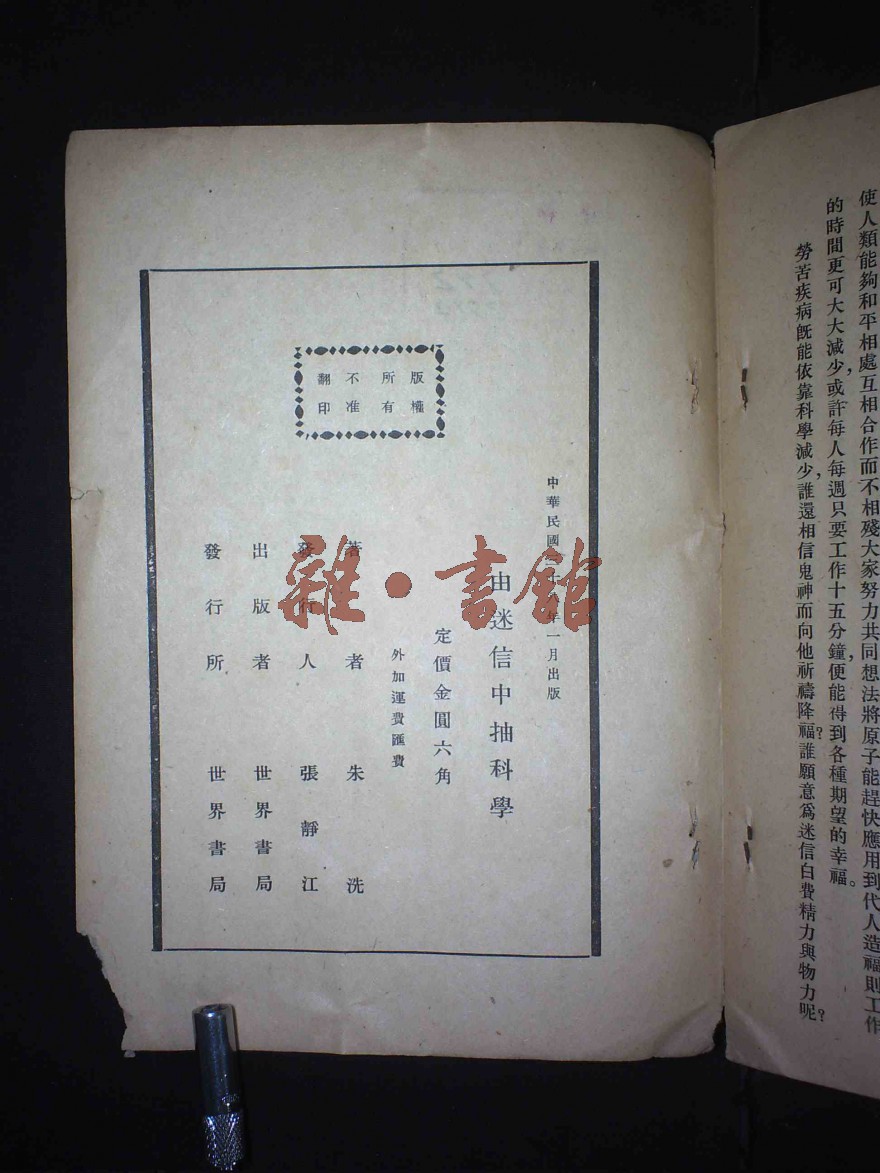 使人類能夠和平相處，互相合作而不相殘大家努力共同想法將原子能趕快應用到代人造福則工作
的時間更可大大減少，或許每人每週只要工作十五分鐘，便能得到各種期望的幸福。
勞苦疾病既能依靠科學減少，誰還相信鬼神而向他祈禱降福？誰願意爲迷信白費精力與物力呢？
版權
所有
不准
翻印
中華民國 十 年一月出版
由迷信中抽科學
定價金圓六角
外加運費匯費
著者 朱洗
發行人 張靜江
出版者 世界書局
發行所 世界書局
雜·書館